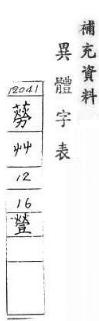 補充資料
異體字表
12041
艸
12
16
螢